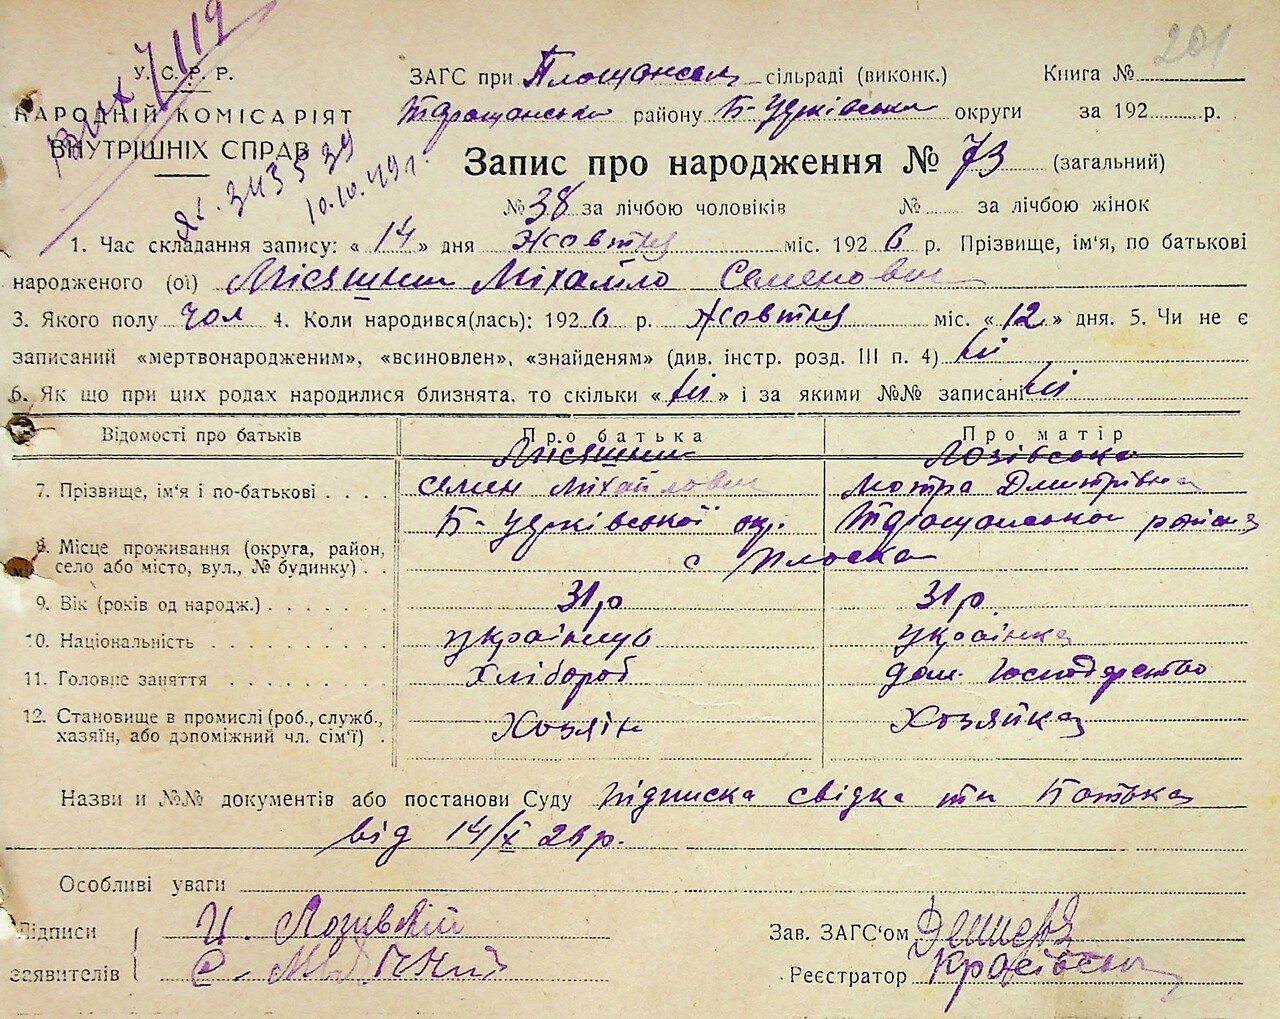 201
119
У. С. Р. Р.
НАРОДНІЙ КОМІСАРІЯТ
ВНУТРІШНІХ СПРАВ
343539
10.10.49 г.
ЗАГС при Площанськ сільраді (виконк.) Книга №
району Б-Церківськи округи за 192 р.
Запис про народження № 73 (загальний)
№ 38 за лічбою чоловіків № за лічбою жінок
1. Час складання запису: « 14 » дня Жовтня міс. 1926 р. Прізвище, ім'я, по батькові
народженого (ої) Місяшнии Міхайло Семенович
3. Якого полу чол 4. Коли народився(лась): 1926 р. Жовтня міс. « 12 » дня. 5. Чи не є
записаний «мертвонародженим», «всиновлен», «знайденям» (див. інстр. розд. III п. 4) ні
6. Як що при цих родах народилися близнята, то скільки « ні » і за якими №№ записані ні
Відомості про батьків Про батька Про матір
Місяшнии Лозівська
7. Прізвище, ім'я і по-батькові Семен Міхайлович Мотра Дмитрівна
Б-Церківської окр. району
8. Місце проживання (округа, район, село або місто, вул., № будинку) с Плоска
9. Вік (років од народж.) 31 р 31 р.
10. Національність українць українка
11. Головне заняття Хлібороб дом. господарство
12. Становище в промислі (роб., служб., хазяїн, або допоміжний чл. сім'ї) Хозяін Хозяйка
Назви и №№ документів або постанови Суду підписка свідка та Батька
від 14/X 26 р.
Особливі уваги
Підписи заявителів
И. Лозивский
С.
Зав. ЗАГС'ом
Реєстратор